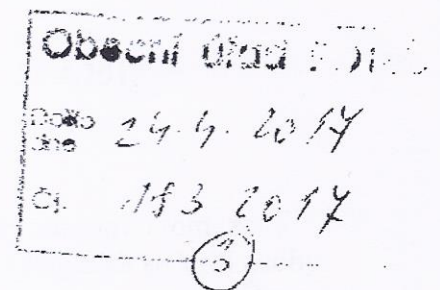 Obecní úřad
Došlo
dne 24.4. 2017
Čj. 183 2017